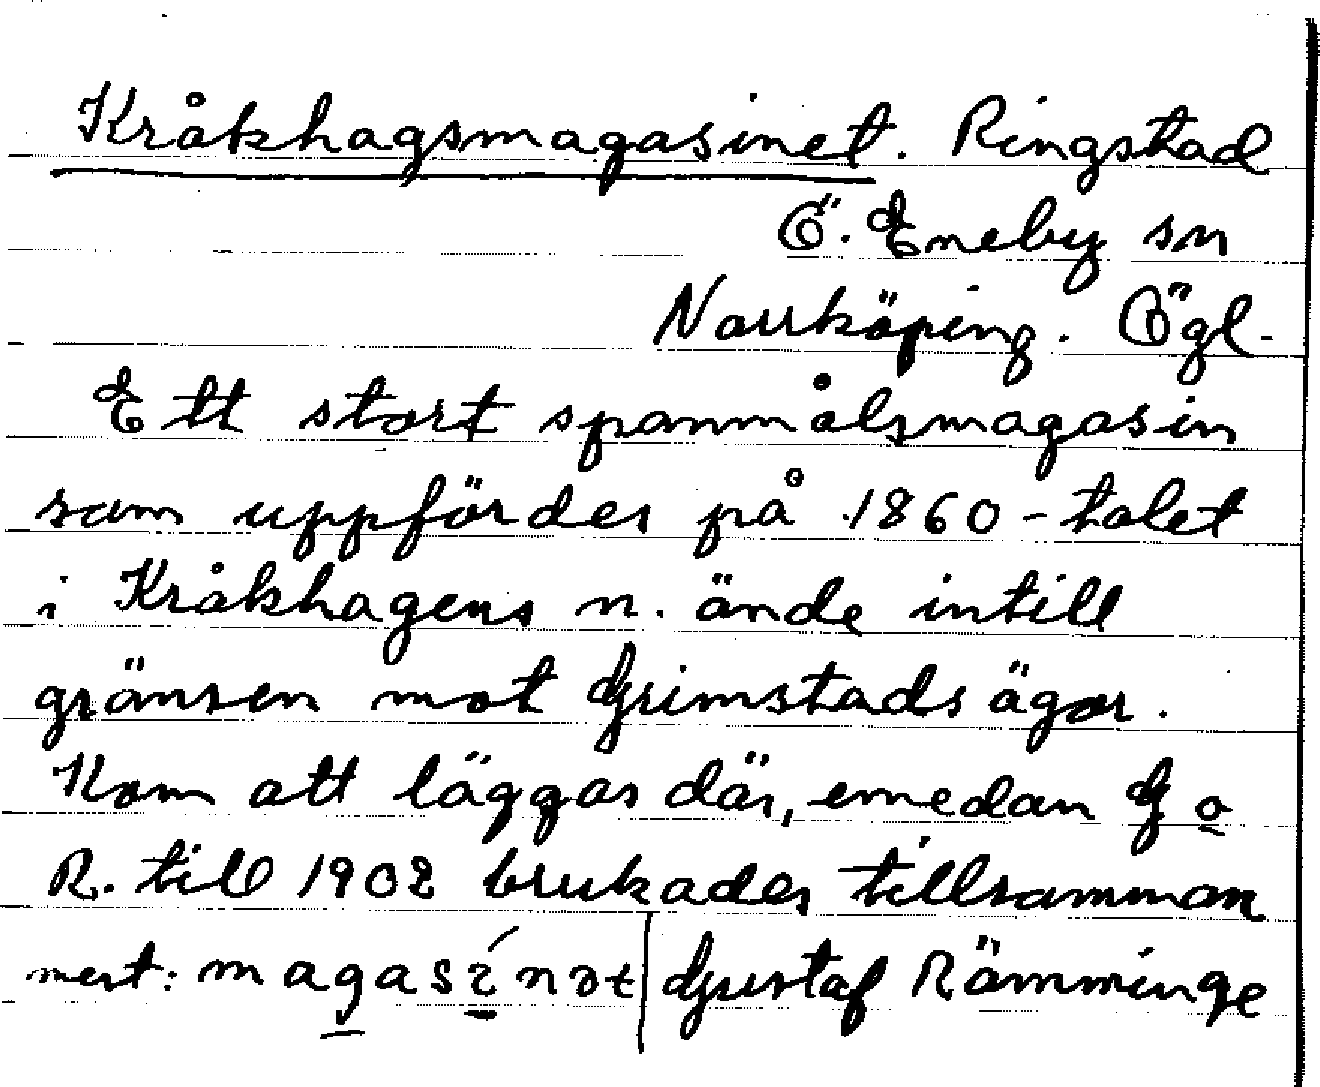 Kråkhagsmagasinet. Ringstad
Ö. Eneby sn
Norrköping. Ögl.
Ett stort spannmålsmagasin
som uppfördes på 1860-talet
i Kråkhagens n. ände intill
gränsen mot Grimstads ägor.
Kom att läggas där, emedan G o
R. till 1902 brukades tillsamman
mest: magasínət | Gustaf Rämminge